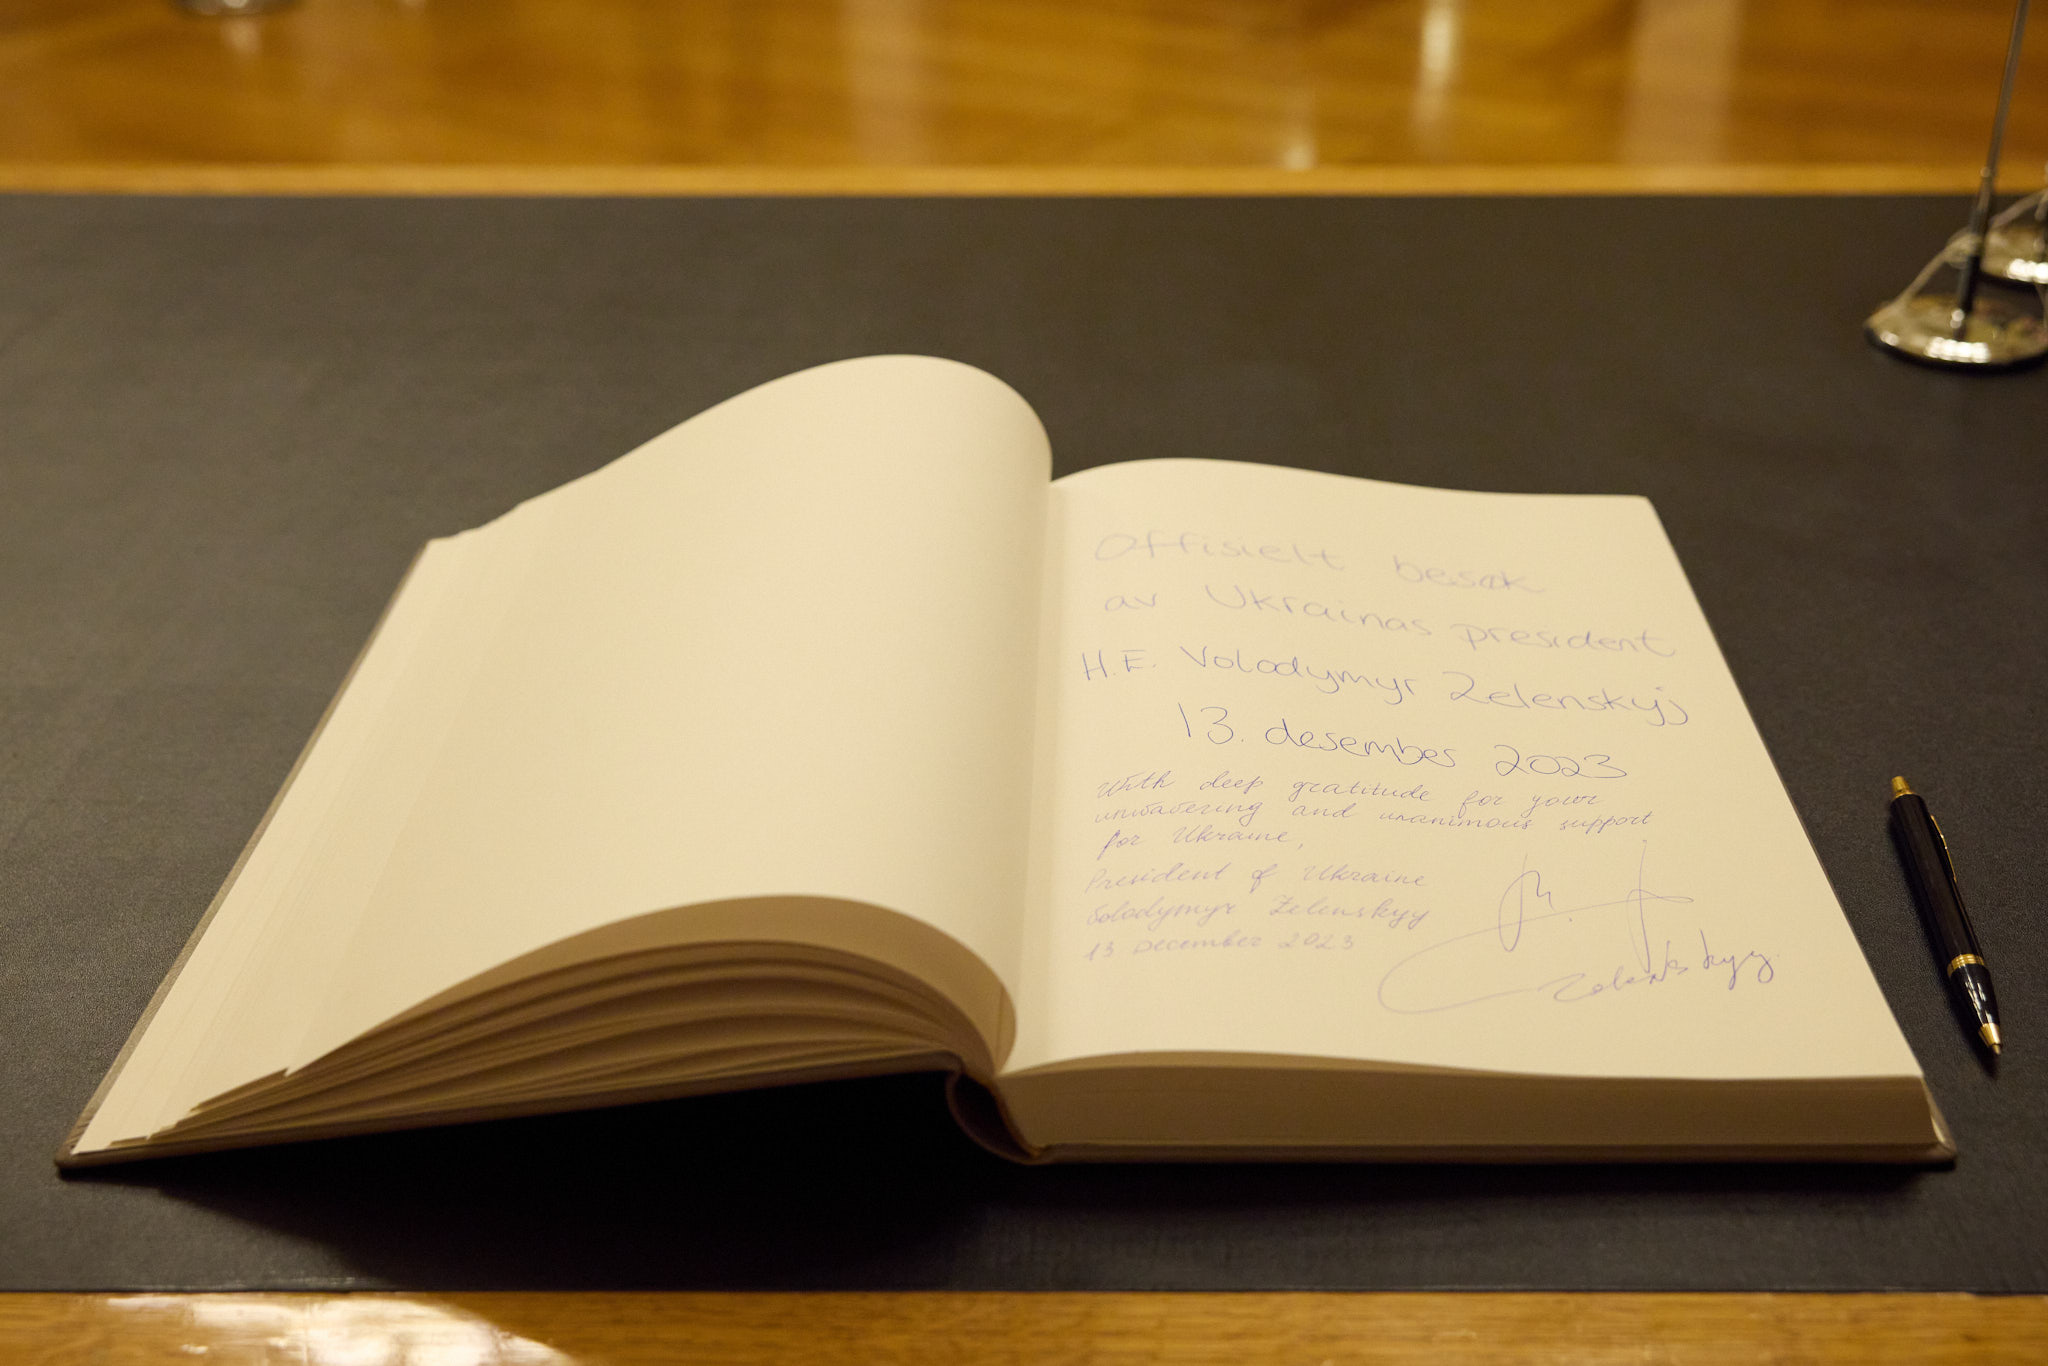 Offisielt besøk
av Ukrainas president
H.E. Volodymyr Zelenskyj
13. desember 2023
With deep gratitude for your
unwavering and unanimous support
for Ukraine,
President of Ukraine
Volodymyr Zelenskyy
13 December 2023
Zelenskyy